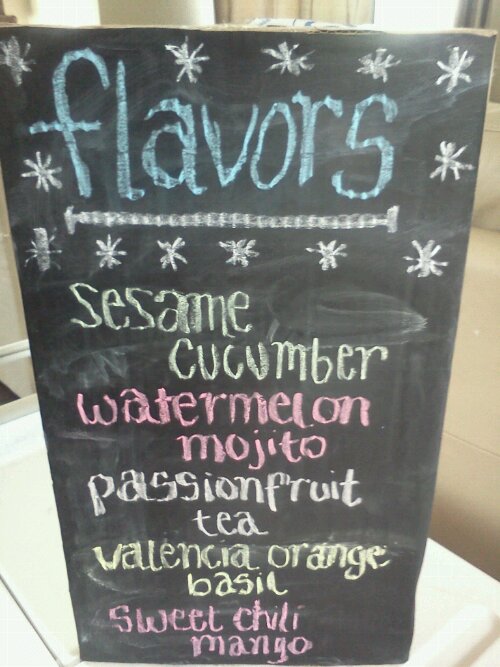 flavors
sesame
cucumber
watermelon
mojito
passionfruit
tea
valencia orange
basil
sweet chili
mango